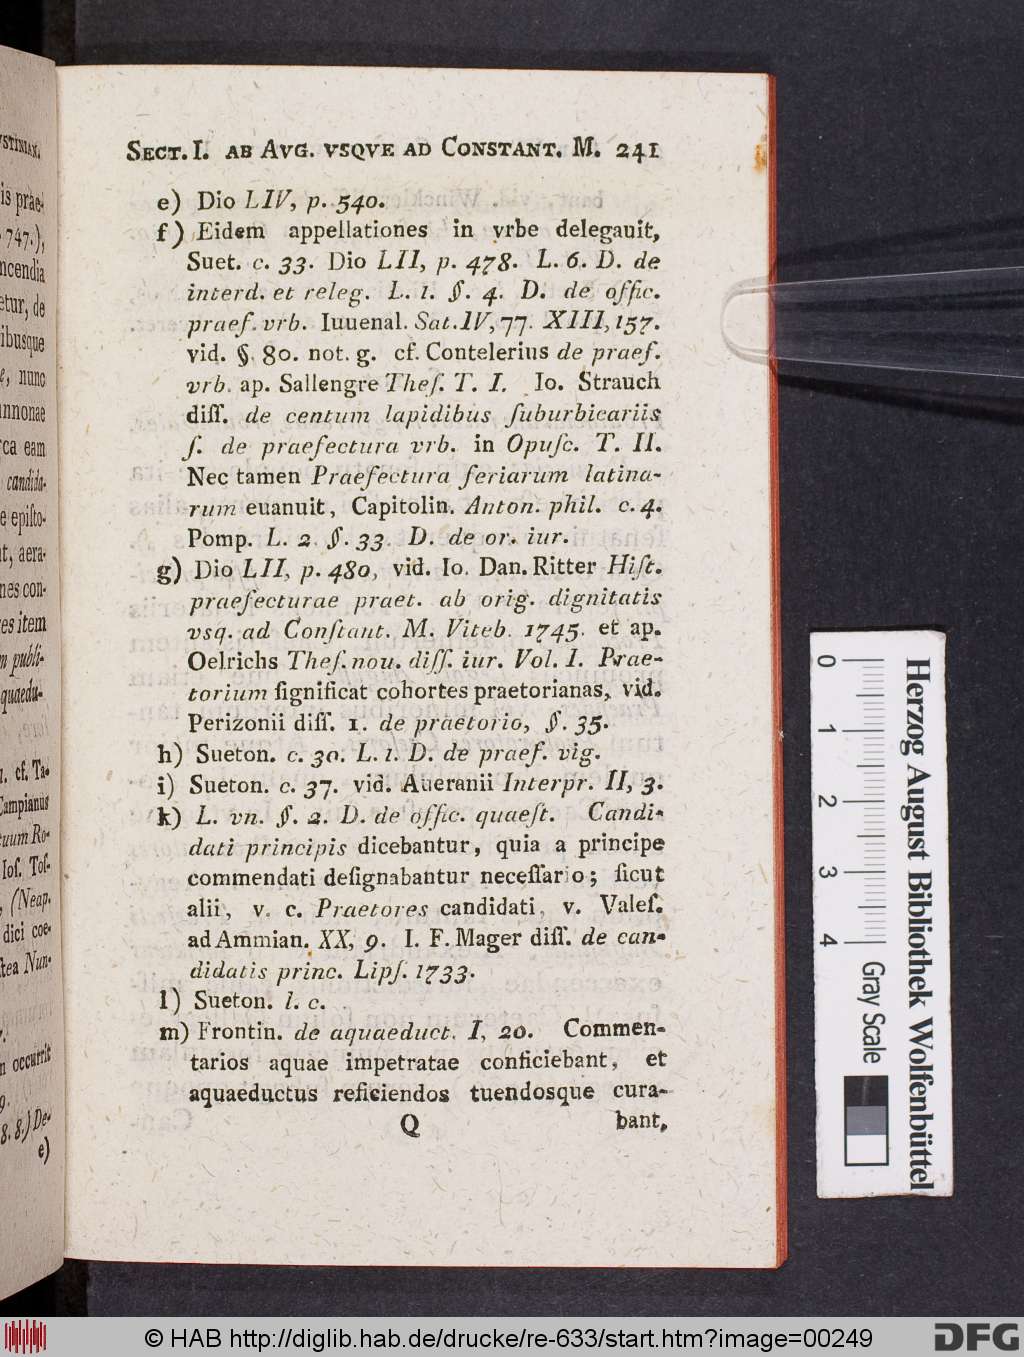 SECT. I. AB AVG. VSQVE AD CONSTANT. M. 241
e) Dio LIV, p. 540.
f) Eidem appellationes in vrbe delegauit,
Suet. c. 33. Dio LII, p. 478. L. 6. D. de
interd. et releg. L. 1. §. 4. D. de offic.
praef. vrb. Iuuenal. Sat. IV, 77. XIII, 157.
vid. §. 80. not. g. cf. Contelerius de praef.
vrb. ap. Sallengre Theſ. T. I. Io. Strauch
diſſ. de centum lapidibus ſuburbicariis
ſ. de praefectura vrb. in Opuſc. T. II.
Nec tamen Praefectura feriarum latina-
rum euanuit, Capitolin. Anton. phil. c. 4.
Pomp. L. 2. §. 33. D. de or. iur.
g) Dio LII, p. 480, vid. Io. Dan. Ritter Hiſt.
praefecturae praet. ab orig. dignitatis
vsq. ad Conſtant. M. Viteb. 1745. et ap.
Oelrichs Theſ. nou. diſſ. iur. Vol. I. Prae-
torium ſignificat cohortes praetorianas, vid.
Perizonii diſſ. 1. de praetorio, §. 35.
h) Sueton. c. 30. L. 1. D. de praef. vig.
i) Sueton. c. 37. vid. Aueranii Interpr. II, 3.
k) L. vn. §. 2. D. de offic. quaeſt. Candi-
dati principis dicebantur, quia a principe
commendati deſignabantur neceſſario; ſicut
alii, v. c. Praetores candidati, v. Valeſ.
ad Ammian. XX, 9. I. F. Mager diſſ. de can-
didatis princ. Lipſ. 1733.
l) Sueton. l. c.
m) Frontin. de aquaeduct. I, 20. Commen-
tarios aquae impetratae conficiebant, et
aquaeductus reficiendos tuendosque cura-
Q bant,
is prae-
747.),
ncendia
etur, de
ibusque
e, nunc
annonae
rca eam
candida-
e epiſto-
nt, aera-
nes con-
es item
m publi-
quaedu-
1. cf. Ta-
Campianus
tuum Ro-
Ioſ. Toſ-
, (Neap.
dici coe-
ſtea Nun-
n occurrit
9.
8. 8.) De-
e)
0 1 2 3 4
Herzog August Bibliothek Wolfenbüttel
Gray Scale
© HAB http://diglib.hab.de/drucke/re-633/start.htm?image=00249
DFG